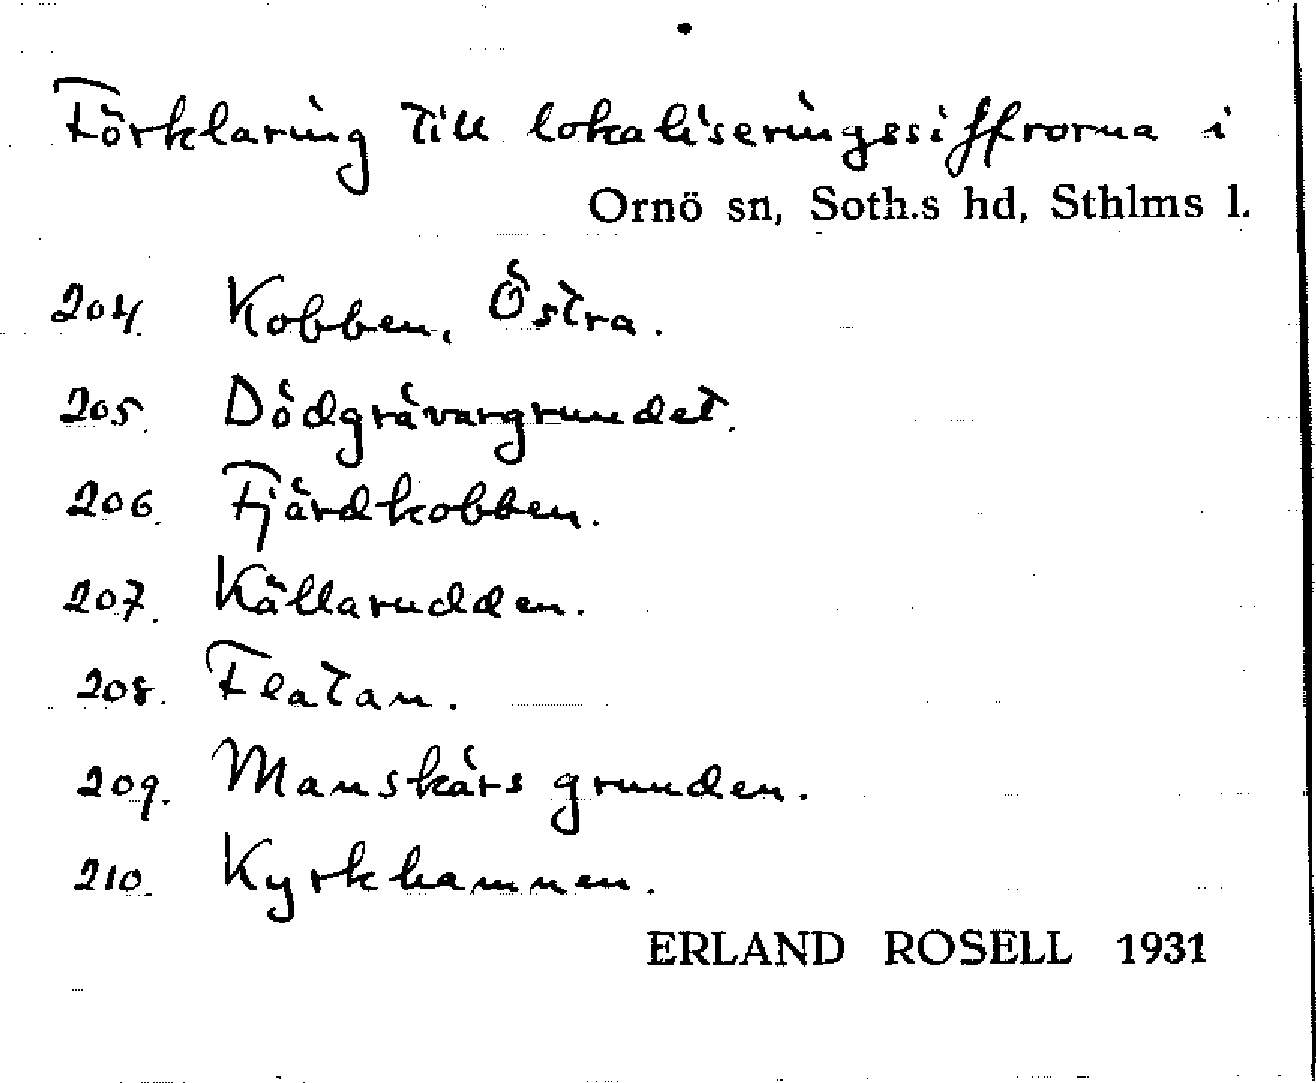 Förklaring till lokaliseringssiffrorna i
Ornö sn, Soth.s hd, Sthlms l.
204. Kobben, Östra.
205. Dödgrävargrundet.
206. Fjärdkobben.
207. Källarudden.
208. Flatan.
209. Manskärs grunden.
210. Kyrkhamnen.
ERLAND ROSELL 1931